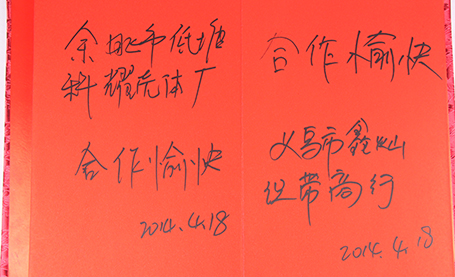 余姚市低塘
科耀壳体厂
合作愉快
2014.4.18
合作愉快
义乌市鑫灿
织带商行
2014.4.18